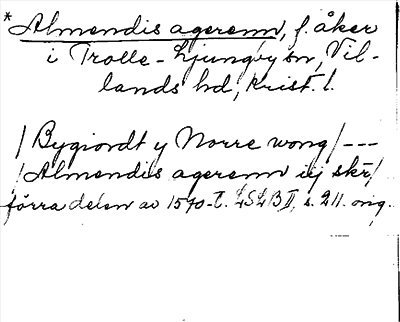 * Almendis agerenn, f. åker
i Trolle-Ljungby sn, Vil-
lands hd, Krist. l.
/ Bygiordt y Norre wong / ---
/ Almendis agerenn iij skr /
förra delen av 1570-t. LSLB II, s. 211. orig.